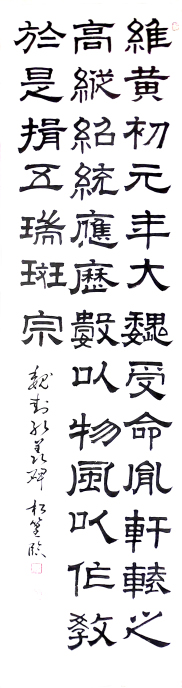 維黃初元年大魏受命胤軒轅之
高縱紹統應歷數以物風以作教
於是揖五瑞斑宗
魏封孔羨碑 松臨